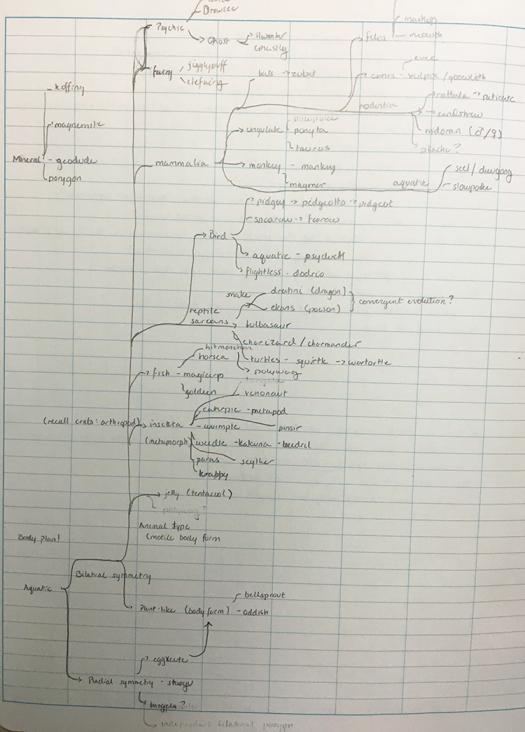 Drowzee
Psychic
Ghost
Haunter
Ghastly
fairy
jigglypuff
clefairy
felids
meowth
eevee
canids - vulpix / growlith
bats → zubat
rodentia
rattata → raticate
sandshrew
nidoran (♂/♀)
pikachu?
koffing
magnemite
Mineral - geodude
porygon
mammalia
ungulate
ponyta
taurus
monkey - mankey
magmar
aquatic
seel / dewgong
slowpoke
pidgey → pidgeotto → pidgeot
spearow → fearow
Bird
aquatic - psyduck
flightless - dodrio
snake
dratini (dragon)
ekans (poison)
convergent evolution?
reptile
bulbasaur
charizard / charmander
hitmonchan
horsea
turtles - squirtle → wartortle
poliwag
fish - magicarp
goldeen
venonaut
caterpie - metapod
(recall crabs: arthropod)
insecta
- wurmple
pinsir
(metamorph)
weedle - kakuna - beedril
paras
scyther
krabby
jelly (tentacool)
Animal type
(motile body form
Body Plan!
Bilateral symmetry
Aquatic
bellsprout
Plant-like (body form) - oddish
eggxecute
Radial symmetry - staryu
tangela?
independent bilateral